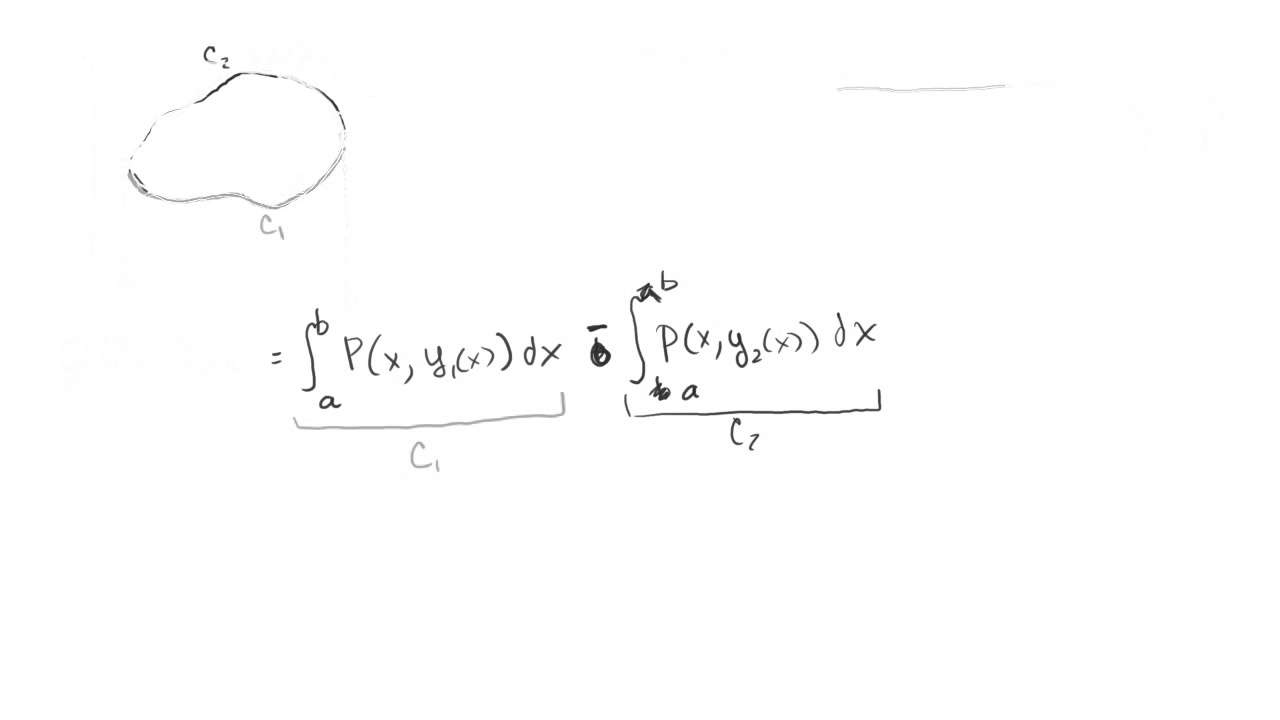 C₂
C₁
= ∫ₐᵇ P(x, y₁(x)) dx - ∫ₐᵇ P(x, y₂(x)) dx
C₁ C₂